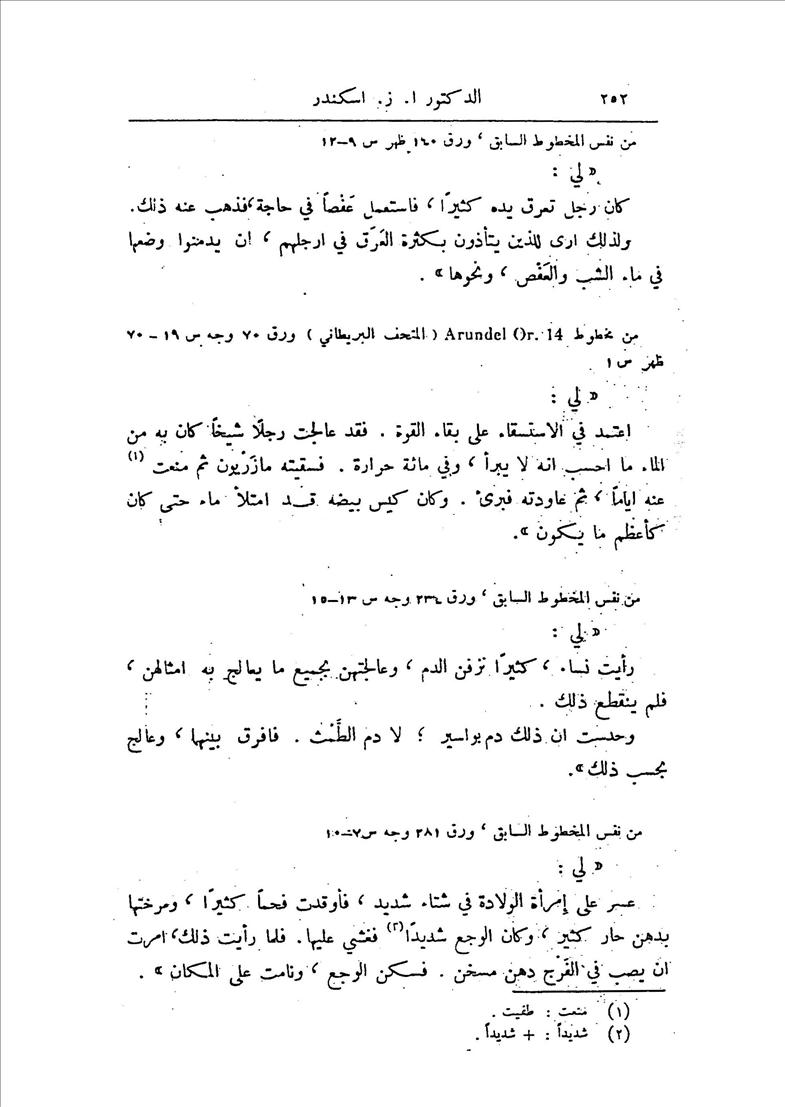 ٢٥٢ الدكتور ا. ز. اسكندر
من نفس المخطوط السابق ، ورق ١٤٠ ظهر س ٩–١٢
« لي :
كان رجل تعرق يده كثيرًا ، فاستعمل عَفْصاً في حاجة ، فذهب عنه ذلك.
ولذلك ارى للذين يتأذون بكثرة العَرَق في ارجلهم ، ان يدمنوا وضعها
في ماء الشب والعَفْص ، ونحوها » .
من مخطوط Arundel Or. 14 ( المتحف البريطاني ) ورق ٧٠ وجه س ١٩ – ٧٠
ظهر س ١
« لي :
اعتمد في الاستسقاء على بقاء القوة . فقد عالجت رجلًا شيخاً كان به من
الماء ما احسب انه لا يبرأ ، وفي مائة حرارة . فسقيته مازَرْيون ثم منعت (١)
عنه اياماً ، ثم عاودته فبرئ . وكان كيس بيضه قد امتلأ ماء حتى كان
كأعظم ما يكون ».
من نفس المخطوط السابق ، ورق ٢٣٤ وجه س ١٣–١٥
« لي :
رأيت نساء ، كثيرًا نزفن الدم ، وعالجتهن بجميع ما يعالج به امثالهن ،
فلم ينقطع ذلك .
وحدست ان ذلك دم بواسير ؛ لا دم الطَّمْث . فافرق بينها ، وعالج
بحسب ذلك ».
من نفس المخطوط السابق ، ورق ٢٨١ وجه س ٧–١٠
« لي :
عسر على إمرأة الولادة في شتاء شديد ، فأوقدت فحماً كثيرًا ، ومرختها
بدهن حار كثير ، وكان الوجع شديدًا (٢) فغشي عليها. فلما رأيت ذلك ، امرت
ان يصب في الفَرْج دهن مسخن . فسكن الوجع ، ونامت على المكان » .
(١) منعت : طفيت .
(٢) شديداً : + شديداً .